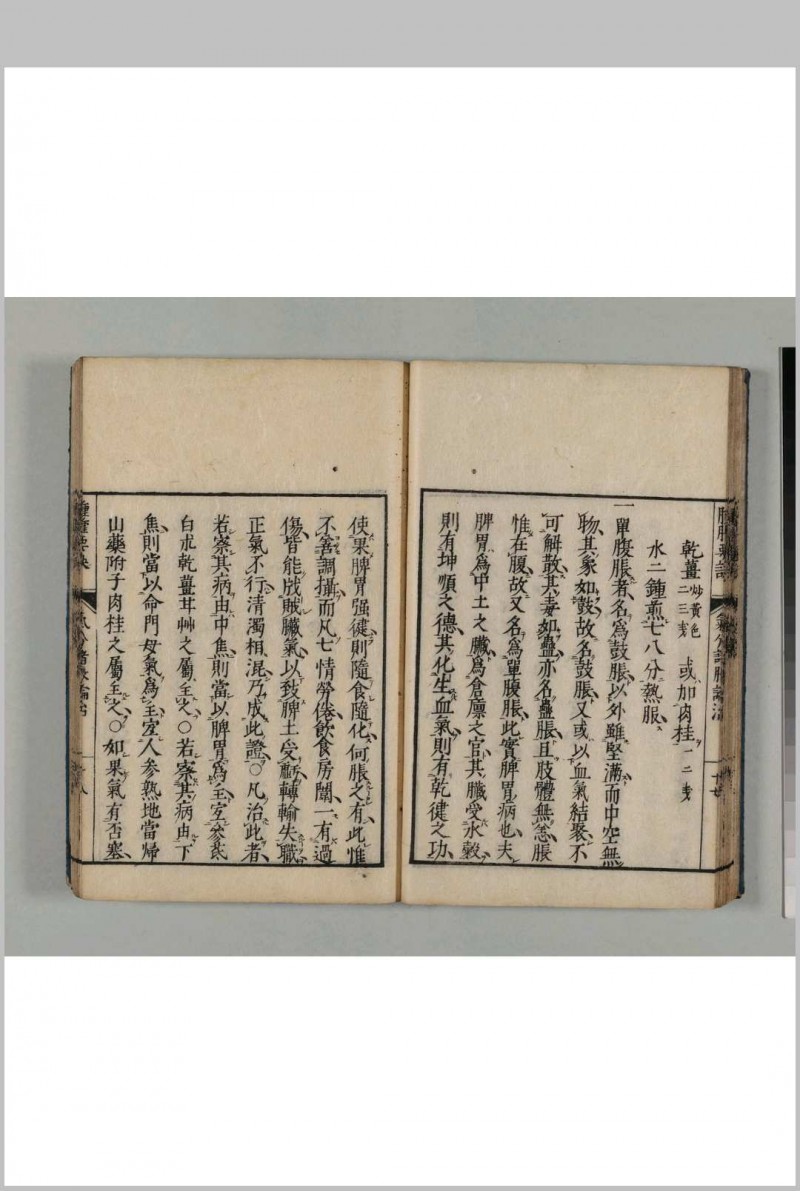 乾薑 炒黃色 二三錢 或加肉桂 一二錢
水二鍾煎七八分熱服
一單腹脹者名爲鼓脹以外雖堅滿而中空無
物其象如鼓故名鼓脹又或以血氣結聚不
可解散其毒如蠱亦名蠱脹且肢體無恙脹
惟在腹故又名爲單腹脹此實脾胃病也夫
脾胃爲中土之臟爲倉廩之官其臟受水穀
則有坤順之德其化生血氣則有乾健之功
使果脾胃强健則隨食隨化何脹之有此惟
不善調攝而凡七情勞倦飲食房闈一有過
傷皆能戕賊臟氣以致脾土受虧轉輸失職
正氣不行清濁相混乃成此證○凡治此者
若察其病由中焦則當以脾胃爲主宜參芪
白朮乾薑耳艸之屬主之○若察其病由下
焦則當以命門母氣爲主宜人參熟地當歸
山藥附子肉桂之屬主之○如果氣有否塞